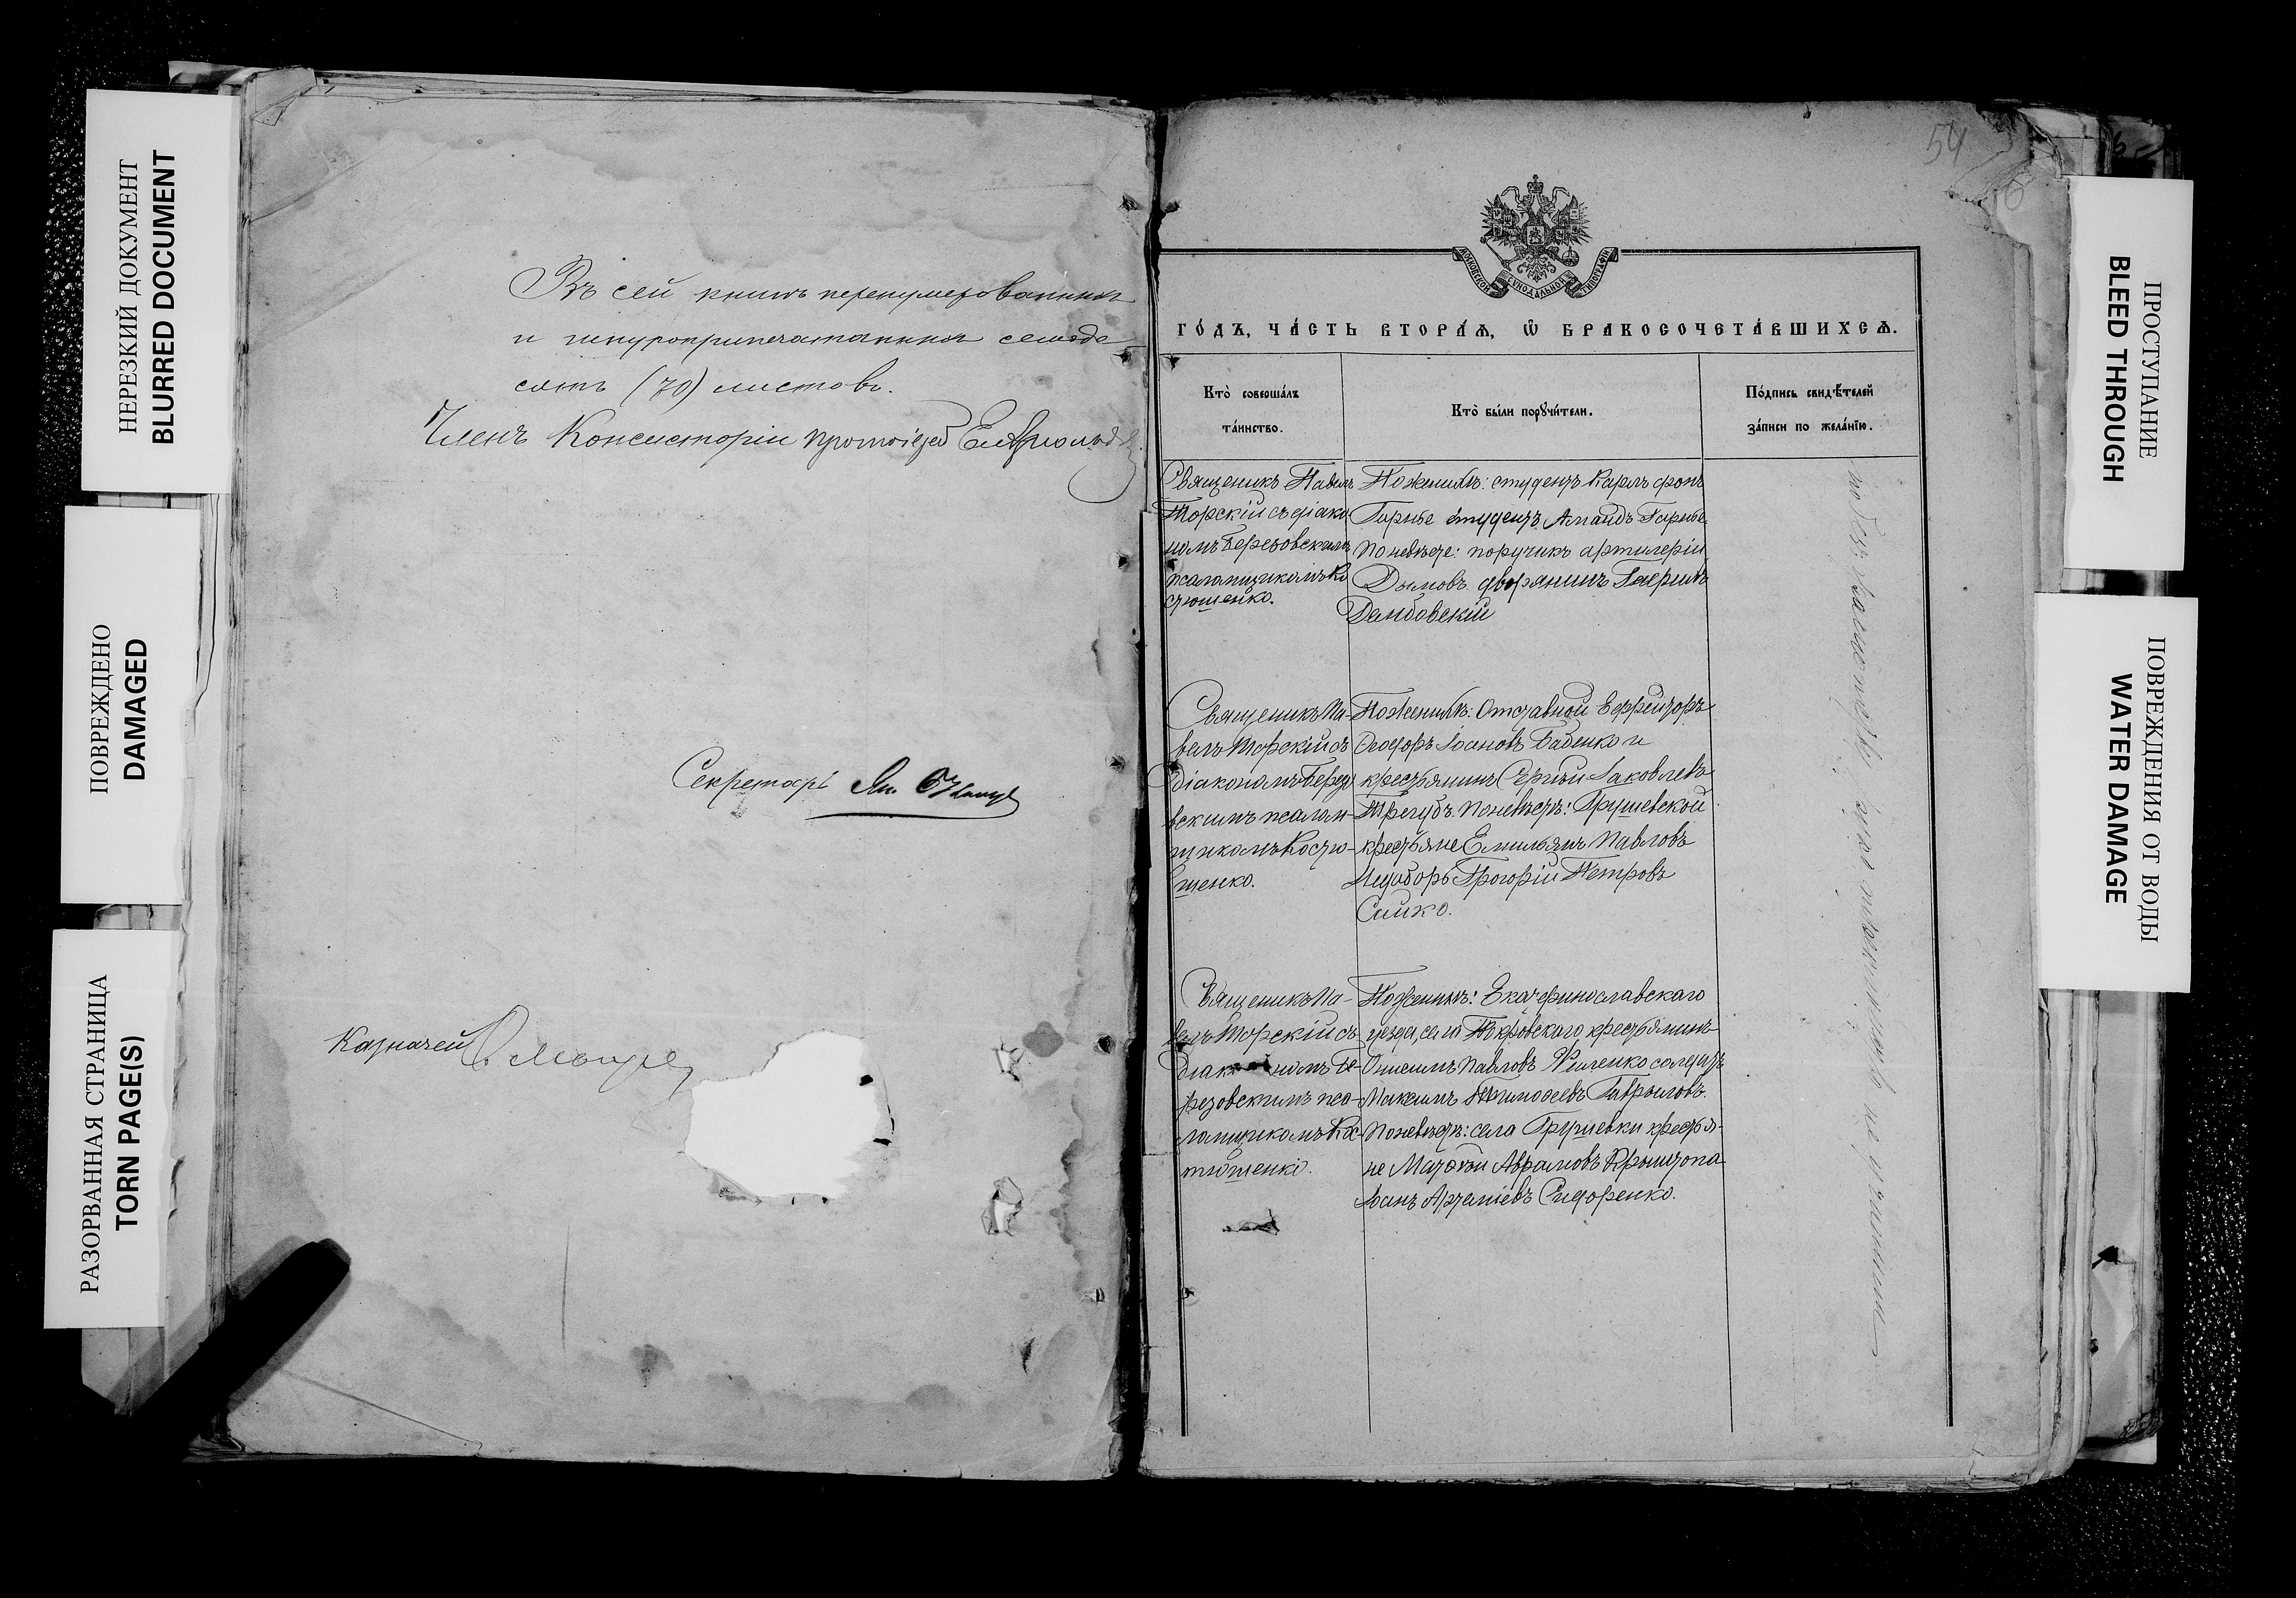 НЕРЕЗКИЙ ДОКУМЕНТ
BLURRED DOCUMENT
ПОВРЕЖДЕНО
DAMAGED
РАЗОРВАННАЯ СТРАНИЦА
TORN PAGE(S)
Въ сей книгѣ перенумерованныхъ
и шнуроприпечатанныхъ семьде
сятъ (70) листовъ.
Членъ Консисторіи протоіерей
Секретарь
Казначей
54
МОСКОВСКОЙ СѴНОДАЛЬНОЙ ТИПОГРАФІИ
ГО́ДЪ, ЧА́СТЬ ВТОРА́Ѧ, Ѡ҆ БРАКОСОЧЕТА́ВШИХСѦ.
Кто̀ соверша́лъ
та́инство.
Кто̀ бы́ли порꙋчи́тели.
По́дпись свидѣ́телей
за́писи по жела́нїю.
Священикъ Павелъ
Торскій съ діако
номъ Березовскимъ
псаломщикомъ Ко
стюшенко.
По женихѣ: студентъ Карлъ фонъ
Гарнье студентъ Амандъ Гарнье
по невѣсте: поручикъ артилеріи
Дымовъ дворянинъ Гавриилъ
Дембовскій
Священикъ Па-
велъ Торскій съ
діакономъ Березо
вскимъ псалом-
щикомъ Костю-
шенко.
По женихѣ: Отставной Ефрейторъ
Ѳеодоръ Іоановъ Бабенко и
крестьянинъ Сергѣй Іаковлевъ
Трегубъ. по невѣстѣ: Грушевской
крестьяне Емильянъ Павловъ
Григорій Петровъ
Сийко.
Священикъ Па-
велъ Торскій съ
діакономъ Бе-
резовскимъ пса-
ломщикомъ Кос-
тюшенко.
По женихѣ: Екатеринославскаго
уезда, села Покровскаго крестьянинъ
Онисимъ Павловъ Филенко солдатъ
Максимъ Тимофеевъ Гаврыловъ.
По невѣстѣ: села Грушевки крестья-
не Матѳѣй Аврамовъ Крышτопа
Іоанъ Артеміевъ Сидоренко.
ПРОСТУПАНИЕ
BLEED THROUGH
ПОВРЕЖДЕНИЯ ОТ ВОДЫ
WATER DAMAGE